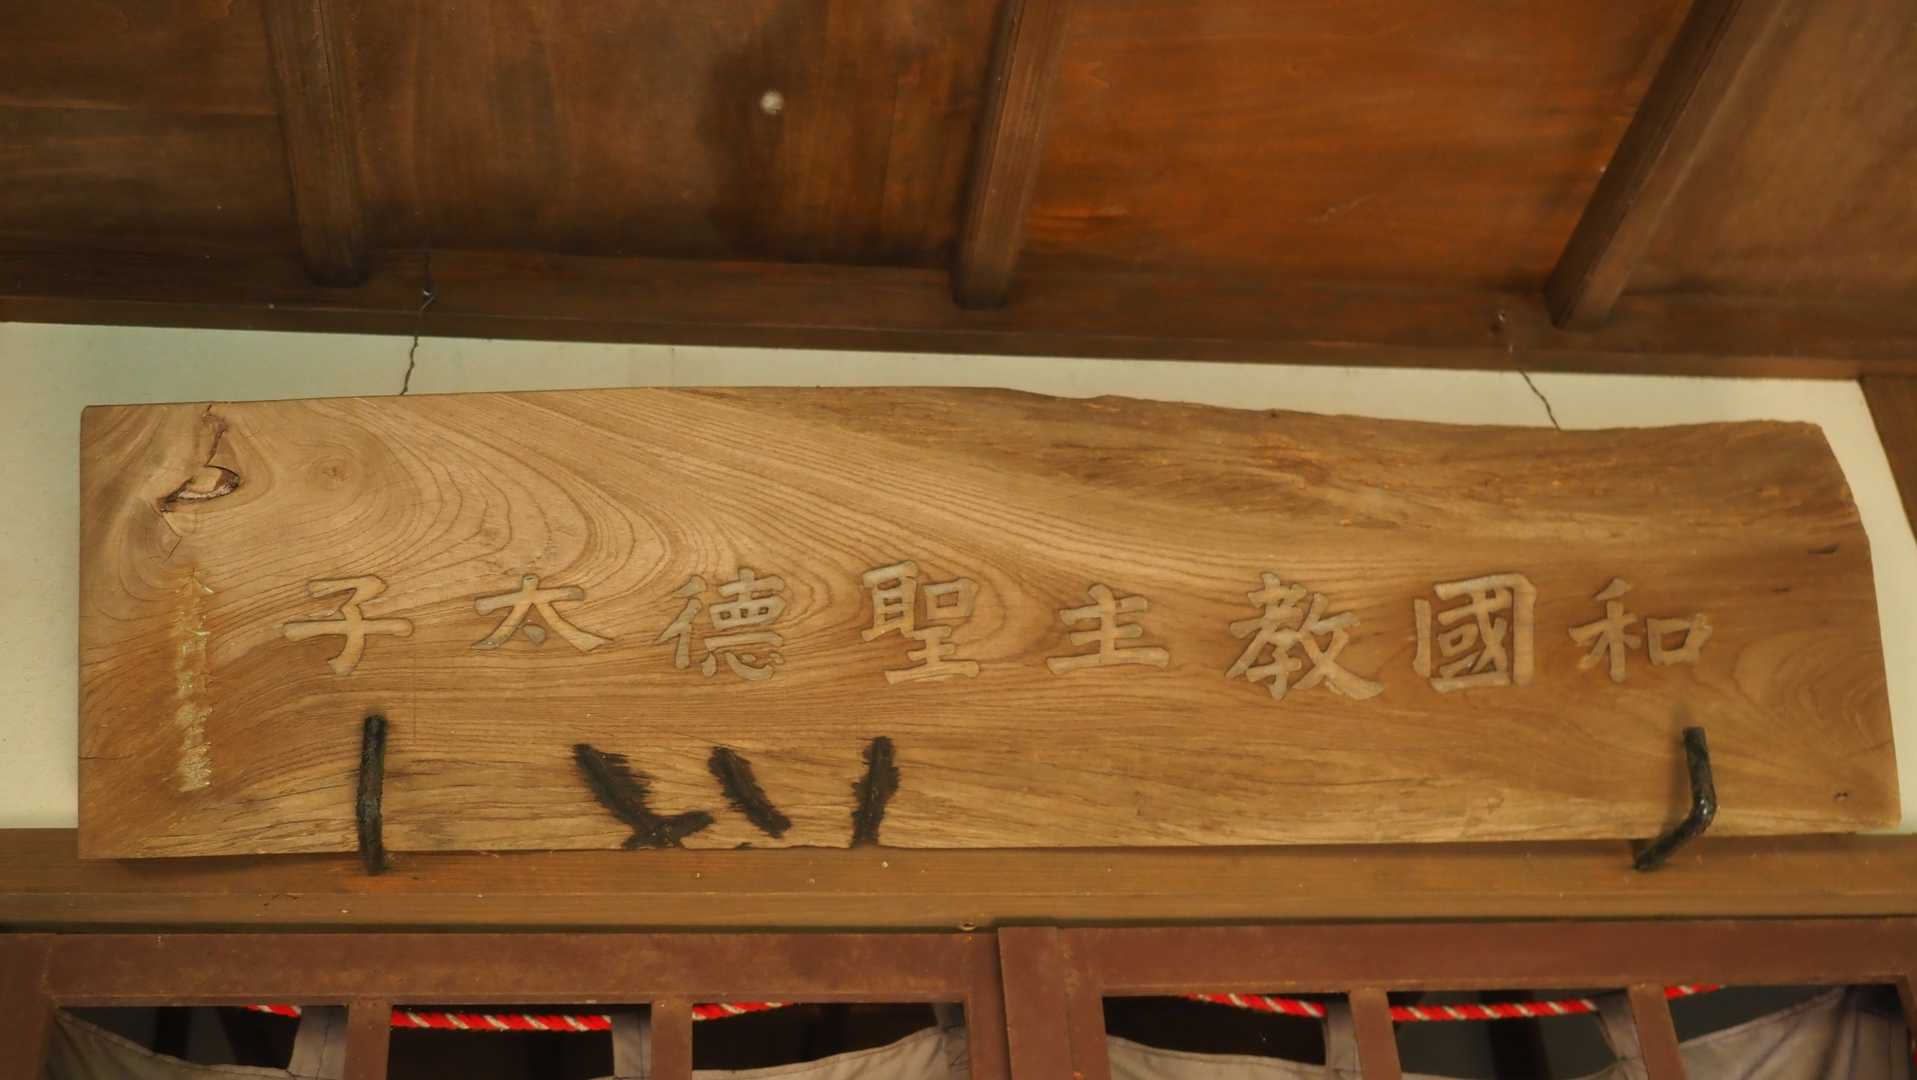 和國教主聖德太子